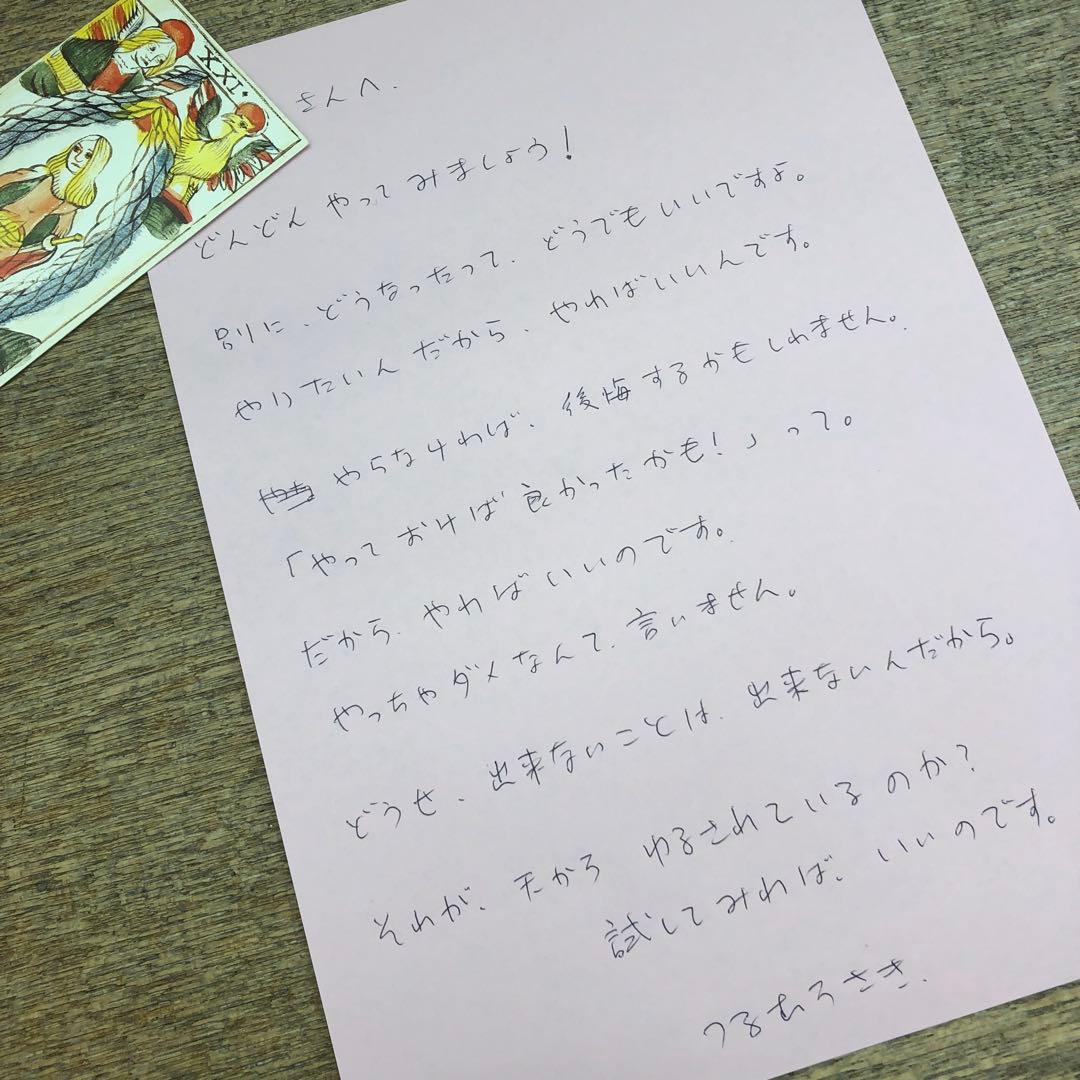 XXI
さんへ.
どんどん やってみましょう!
別に、どうなったって、どうでもいいですよ。
やりたいんだから、やればいいんです。
やらなければ、後悔するかもしれません。
「やっておけば良かったかも!」って。
だから、やればいいのです。
やっちゃダメなんて、言いません。
どうせ、出来ないことは、出来ないんだから。
それが、天から ゆるされているのか?
試してみれば、いいのです。
つるむらさき.